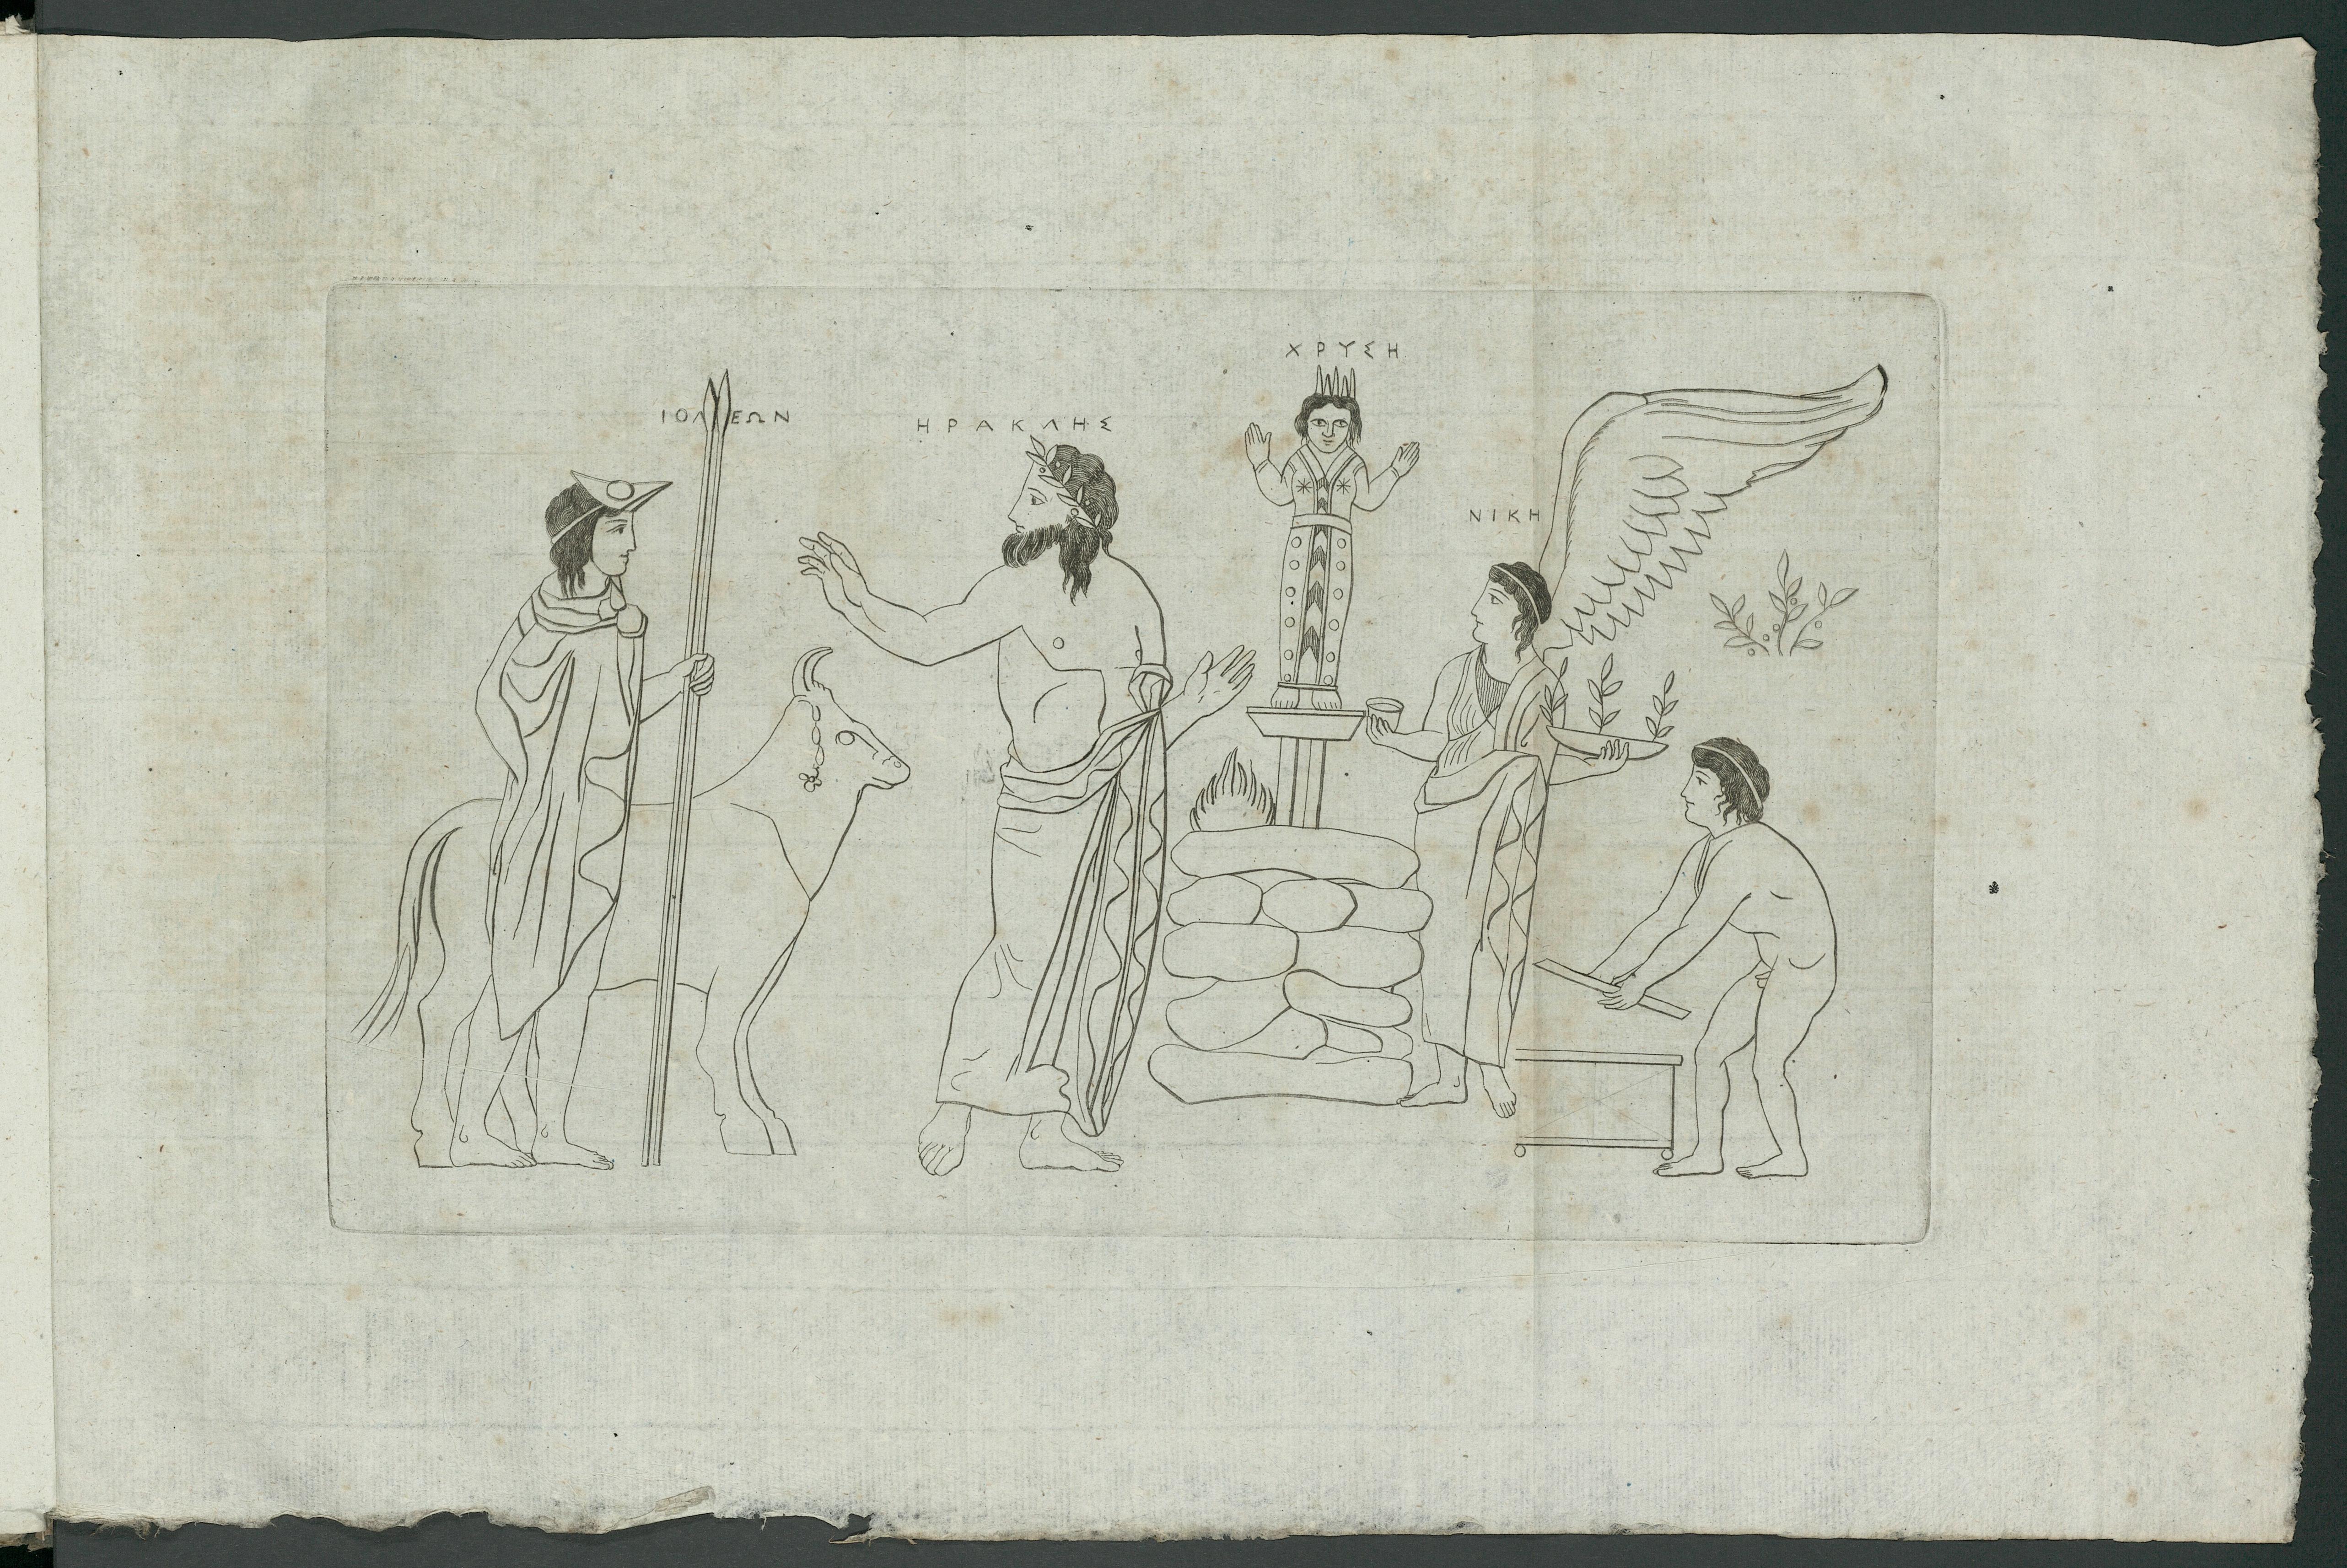 ΙΟΛΕΩΝ
ΗΡΑΚΛΗΣ
ΧΡΥΣΗ
ΝΙΚΗ